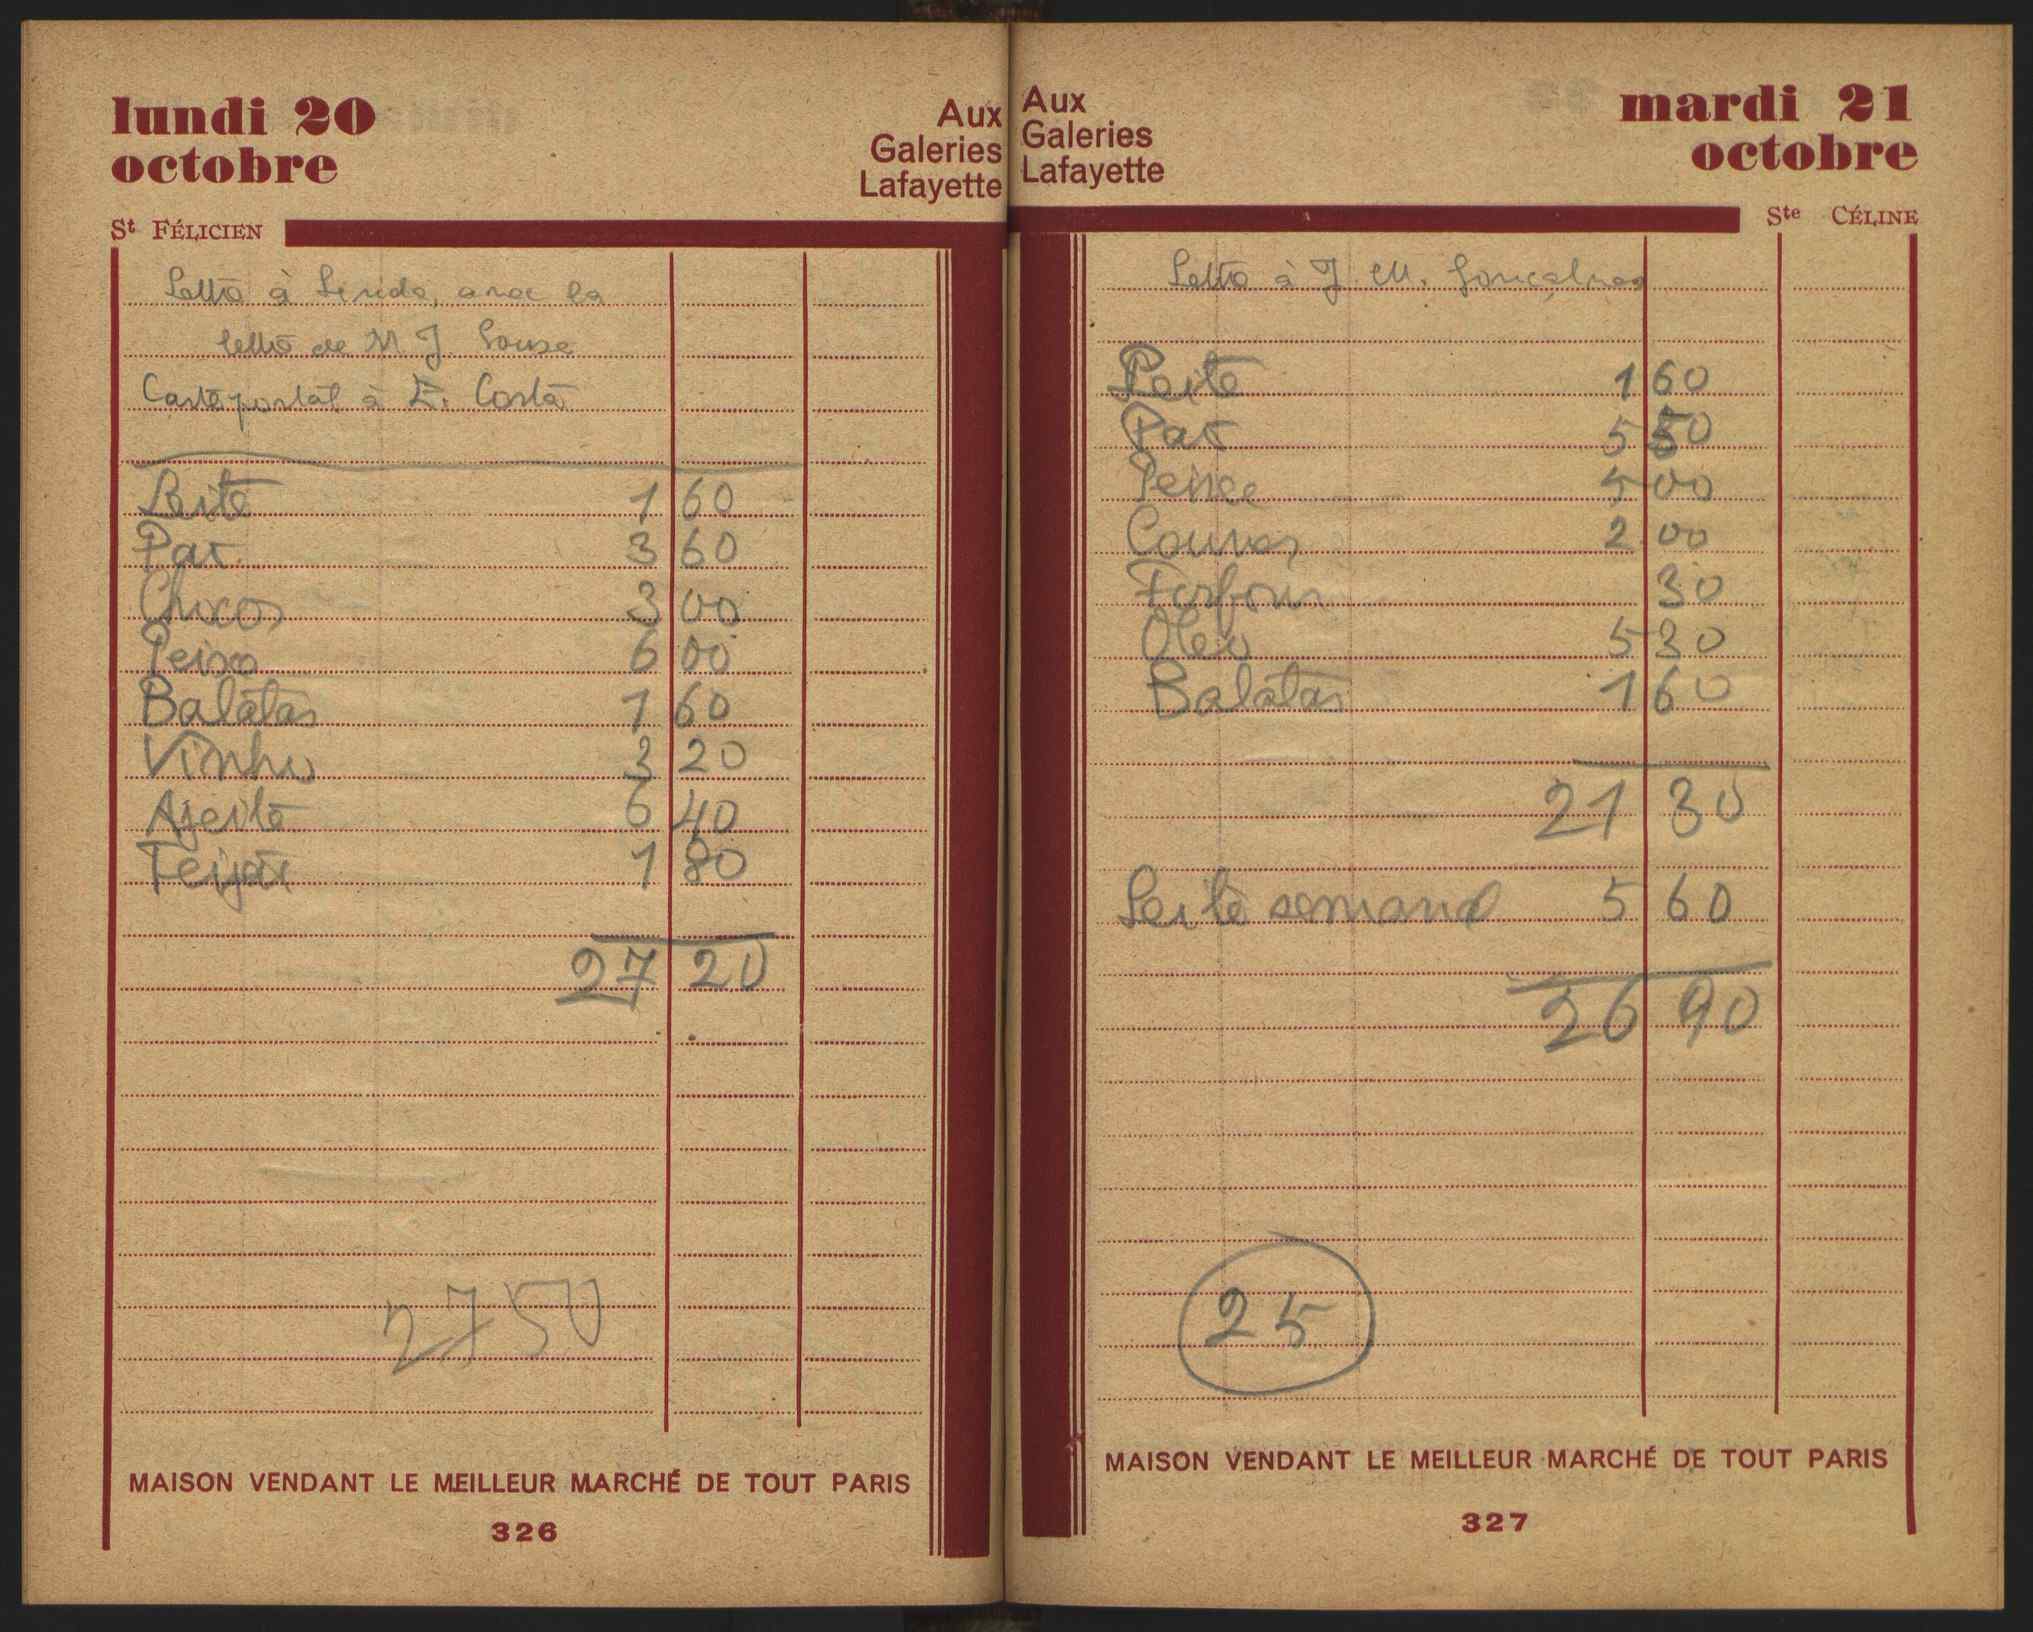 lundi 20
octobre
Aux
Galeries
Lafayette
St FÉLICIEN
Lettre à Linda, avec la
lettre de M J. Souza
Carte postal à E. Costa
Leite 1 60
Pão 3 60
Chocos 3 00
Peixe 6 00
Batatas 1 60
Vinho 3 20
Azeite 6 40
Feijão 1 80
27 20
27 50
MAISON VENDANT LE MEILLEUR MARCHÉ DE TOUT PARIS
326
Aux
Galeries
Lafayette
mardi 21
octobre
Ste CÉLINE
Lettre à J. M. Gonçalves
Leite 1 60
Pão 5 50
Peixe 5 00
Couves 2 00
30
Oleo 5 30
Batatas 1 60
21 30
Leite semana 5 60
26 90
25
MAISON VENDANT LE MEILLEUR MARCHÉ DE TOUT PARIS
327